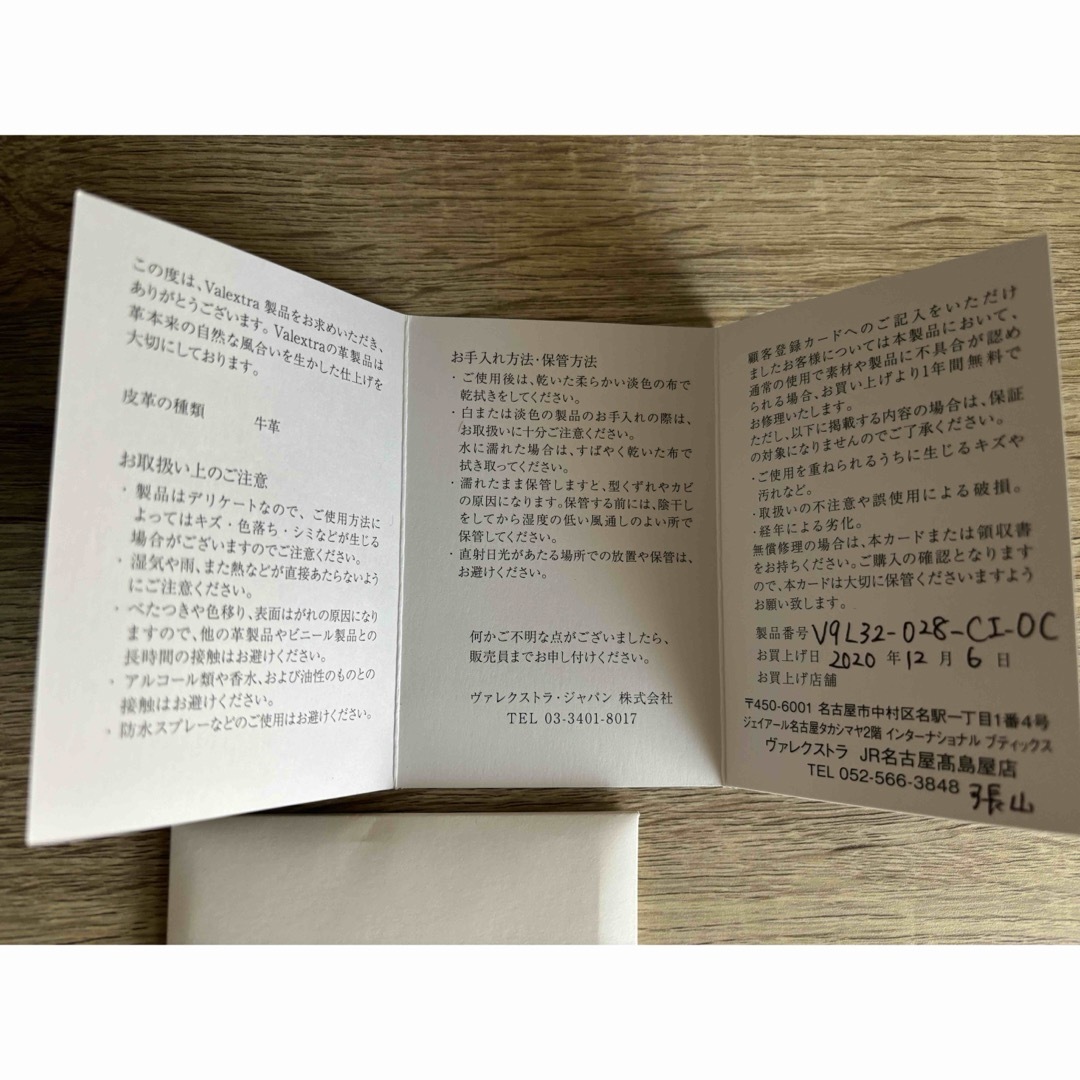 この度は、Valextra 製品をお求めいただき、
ありがとうございます。Valextraの革製品は
革本来の自然な風合いを生かした仕上げを
大切にしております。
皮革の種類 牛革
お取扱い上のご注意
・製品はデリケートなので、ご使用方法に
よってはキズ・色落ち・シミなどが生じる
場合がございますのでご注意ください。
・湿気や雨、また熱などが直接あたらないよう
にご注意ください。
・べたつきや色移り、表面はがれの原因になり
ますので、他の革製品やビニール製品との
長時間の接触はお避けください。
・アルコール類や香水、および油性のものとの
接触はお避けください。
・防水スプレーなどのご使用はお避けください。
お手入れ方法・保管方法
・ご使用後は、乾いた柔らかい淡色の布で
乾拭きをしてください。
・白または淡色の製品のお手入れの際は、
お取扱いに十分ご注意ください。
水に濡れた場合は、すばやく乾いた布で
拭き取ってください。
・濡れたまま保管しますと、型くずれやカビ
の原因になります。保管する前には、陰干し
をしてから湿度の低い風通しのよい所で
保管してください。
・直射日光があたる場所での放置や保管は、
お避けください。
何かご不明な点がございましたら、
販売員までお申し付けください。
ヴァレクストラ・ジャパン 株式会社
TEL 03-3401-8017
顧客登録カードへのご記入をいただけ
ましたお客様については本製品において、
通常の使用で素材や製品に不具合が認め
られる場合、お買い上げより1年間無料で
お修理いたします。
ただし、以下に掲載する内容の場合は、保証
の対象になりませんのでご了承ください。
・ご使用を重ねられるうちに生じるキズや
汚れなど。
・取扱いの不注意や誤使用による破損。
・経年による劣化。
無償修理の場合は、本カードまたは領収書
をお持ちください。ご購入の確認となります
ので、本カードは大切に保管くださいますよう
お願い致します。
製品番号 V9L32-028-CI-OC
お買上げ日 2020 年 12 月 6 日
お買上げ店舗
〒450-6001 名古屋市中村区名駅一丁目1番4号
ジェイアール名古屋タカシマヤ2階 インターナショナル ブティックス
ヴァレクストラ JR名古屋髙島屋店
TEL 052-566-3848 張山